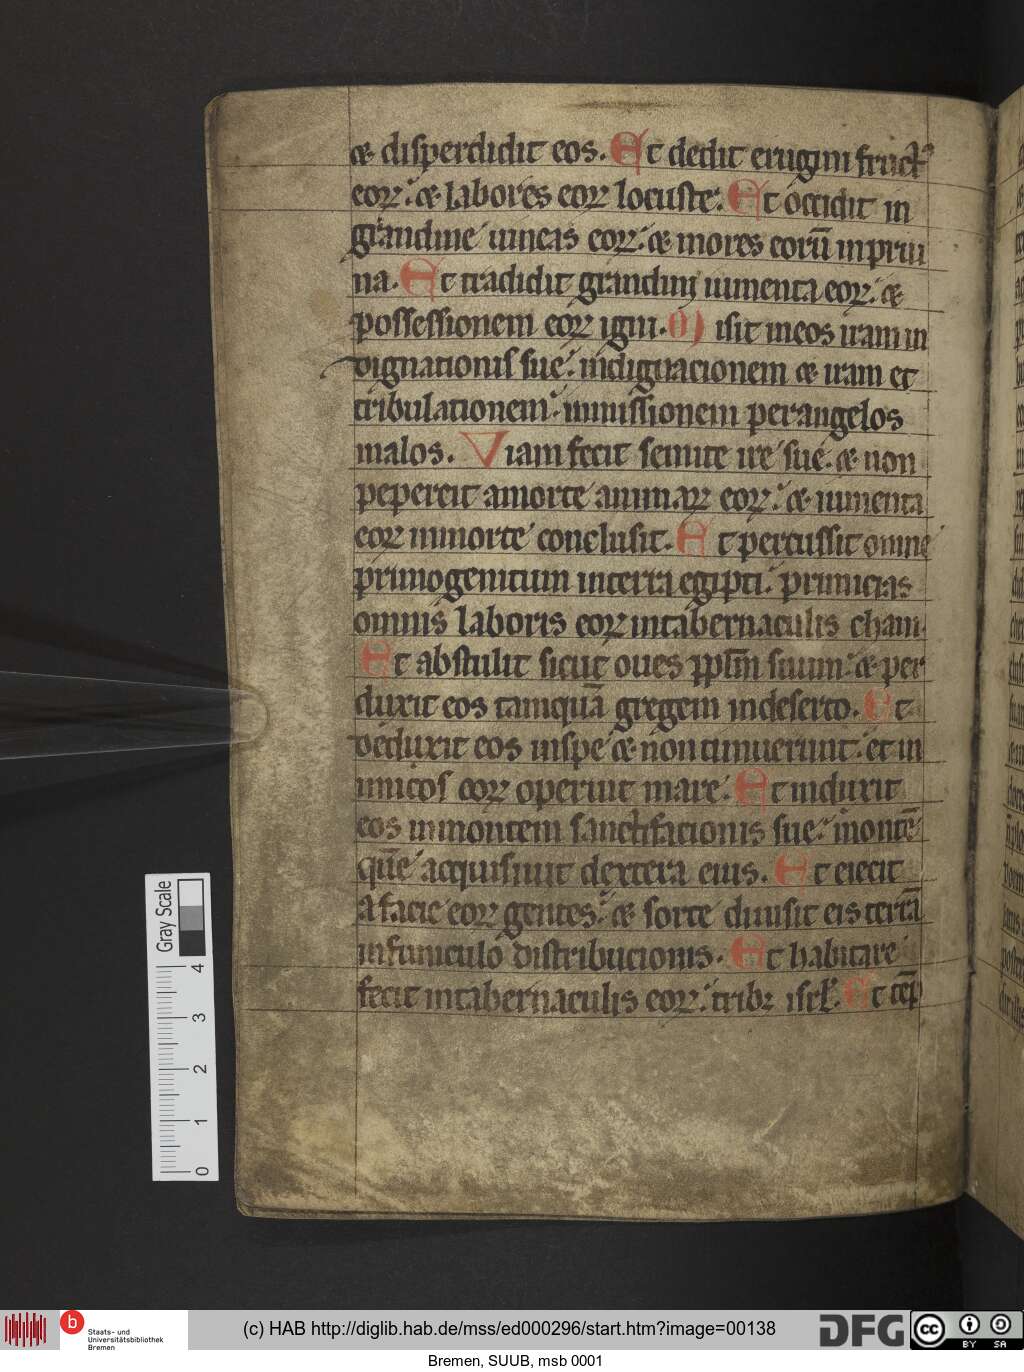 ⁊ disperdidit eos. Et dedit erugini fruct᷒
eoꝝ: ⁊ labores eoꝝ locuste. Et occidit in
grandine uineas eoꝝ: ⁊ mores eorū inprui
na. Et tradidit grandini iumenta eoꝝ: ⁊
possessionem eoꝝ igni. Misit ineos iram in
dignationis sue: indignacionem ⁊ iram et
tribulationem: inmissionem perangelos
malos. Viam fecit semite ire sue. ⁊ non
pepercit amorte animaꝝ eoꝝ: ⁊ iumenta
eoꝝ inmorte conclusit. Et percussit omne
primogenitum interra egipti: primicias
omnis laboris eoꝝ intabernaculis cham.
Et abstulit sicut oues ppl̄m suum: ⁊ per
duxit eos tamquā gregem indeserto. Et
deduxit eos inspe ⁊ non timuerunt: et in
imicos eoꝝ operuit mare. Et induxit
eos inmontem sanctifacionis sue: montē
quē acquisiuit dextera eius. Et eiecit
afacie eoꝝ gentes: ⁊ sorte diuisit eis terrā
infuniculo distribucionis. Et habitare
fecit intabernaculis eoꝝ: tribꝫ isrl̄. Et tēp
Gray Scale
4
3
2
1
0
b
Staats- und
Universitätsbibliothek
Bremen
(c) HAB http://diglib.hab.de/mss/ed000296/start.htm?image=00138
DFG
cc
BY SA
Bremen, SUUB, msb 0001